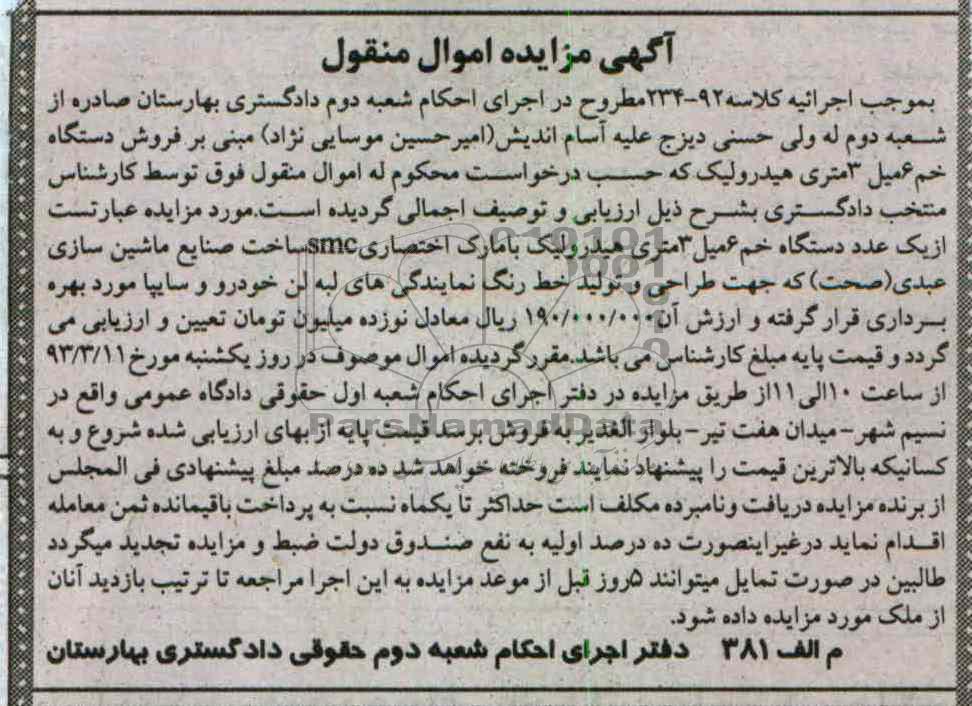 آگهی مزایده اموال منقول
بموجب اجرائیه کلاسه۹۲-۲۳۴مطروح در اجرای احکام شعبه دوم دادگستری بهارستان صادره از
شعبه دوم له ولی حسنی دیزج علیه آسام اندیش(امیرحسین موسایی نژاد) مبنی بر فروش دستگاه
خم۶میل ۳متری هیدرولیک که حسب درخواست محکوم له اموال منقول فوق توسط کارشناس
منتخب دادگستری بشرح ذیل ارزیابی و توصیف اجمالی گردیده است.مورد مزایده عبارتست
ازیک عدد دستگاه خم۶میل۳متری هیدرولیک بامارک اختصاریsmcساخت صنایع ماشین سازی
عبدی(صحت)که جهت طراحی و تولید خط رنگ نمایندگی های لبه لن خودرو و سایپا مورد بهره
برداری قرار گرفته و ارزش آن۱۹۰/۰۰۰/۰۰۰ ریال معادل نوزده میلیون تومان تعیین و ارزیابی می
گردد و قیمت پایه مبلغ کارشناس می باشد.مقرر گردیده اموال موصوف در روز یکشنبه مورخ ۹۳/۳/۱۱
از ساعت ۱۰الی۱۱از طریق مزایده در دفتر اجرای احکام شعبه اول حقوقی دادگاه عمومی واقع در
نسیم شهر-میدان هفت تیر-بلوار الغدیر به فروش برسد قیمت پایه از بهای ارزیابی شده شروع و به
کسانیکه بالاترین قیمت را پیشنهاد نمایند فروخته خواهد شد ده درصد مبلغ پیشنهادی فی المجلس
از برنده مزایده دریافت ونامبرده مکلف است حداکثر تا یکماه نسبت به پرداخت باقیمانده ثمن معامله
اقدام نماید درغیراینصورت ده درصد اولیه به نفع صندوق دولت ضبط و مزایده تجدید میگردد
طالبین در صورت تمایل میتوانند ۵روز قبل از موعد مزایده به این اجرا مراجعه تا ترتیب بازدید آنان
از ملک مورد مزایده داده شود.
م الف ۳۸۱ دفتر اجرای احکام شعبه دوم حقوقی دادگستری بهارستان
ParsNamadData